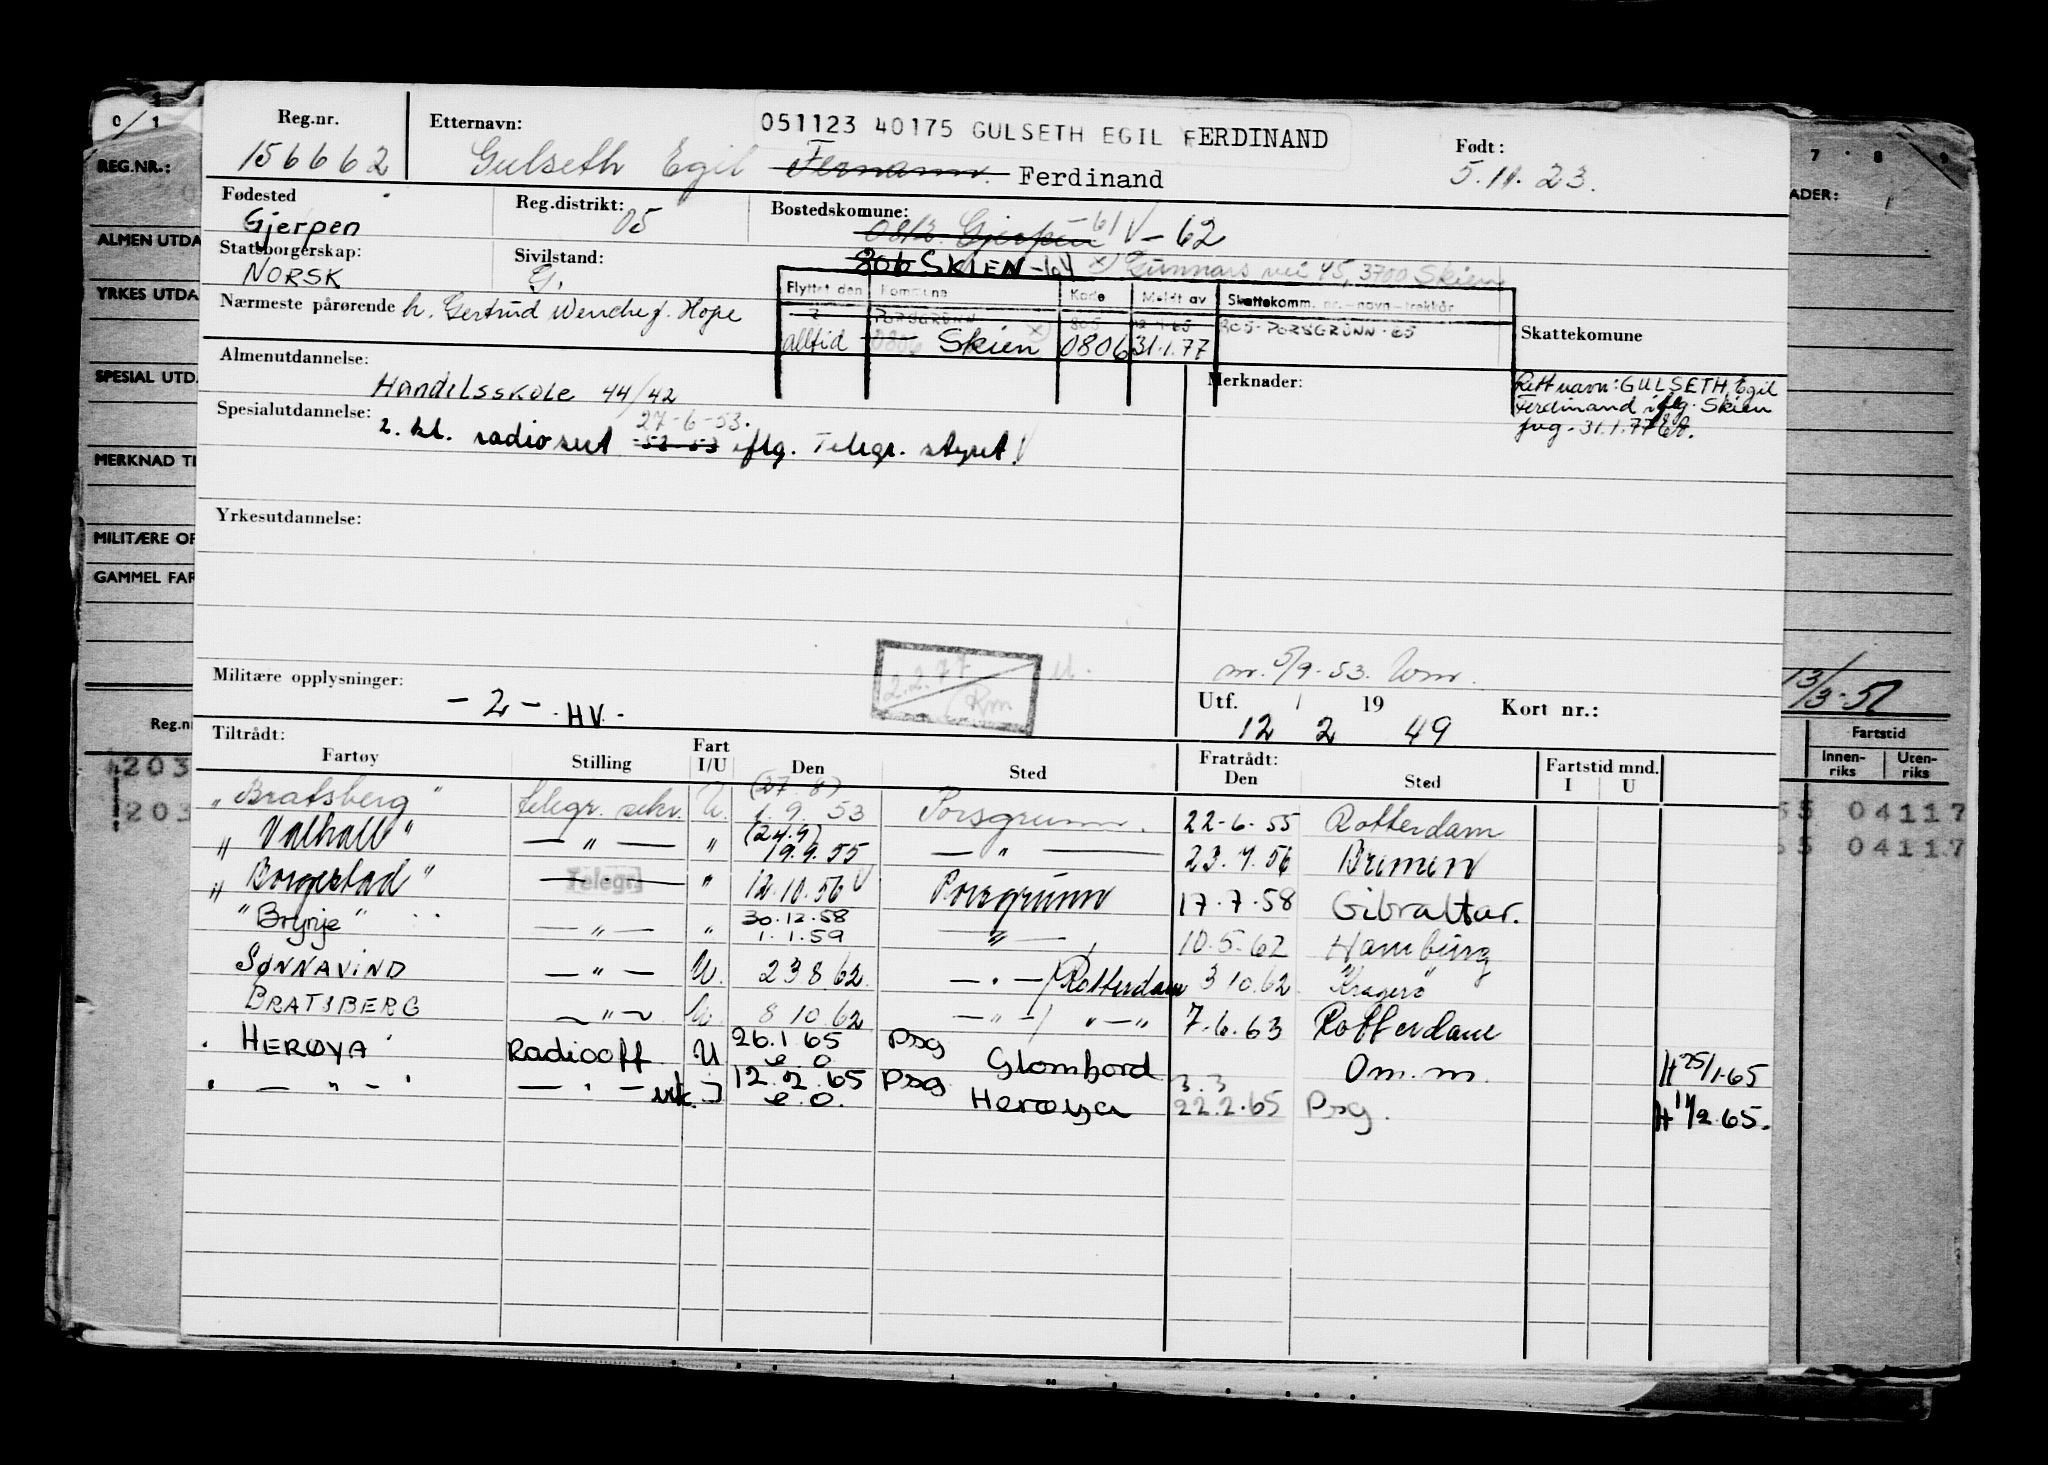 Reg.nr. Etternavn: 051123 40175 GULSETH EGIL FERDINAND Født:
156662 Gulseth Egil Fernann Ferdinand 5.11.23.
Fødested Reg.distrikt: 05 Bostedskomune:
Gjerpen 0812 Gjerpen 61 V-62
Statsborgerskap: Sivilstand: 806 SKIEN -64 x) Gunnars vei 45, 3700 Skien
NORSK G.
Nærmeste pårørende h. Gertrud Wenche f. Hope
Flyttet den Kommune Kode Meldt av Skattekomm. nr.-navn-trekkår
? PORSGRUNN 805 12.1.65 805-PORSGRUNN-65 Skattekomune
alltid 0806 Skien 0806 31.1.77
Almenutdannelse: Merknader:
Handelsskole 44/42
Rett navn: GULSETH Egil
Ferdinand iflg. Skien
fvg. 31.1.77
Spesialutdannelse: 27-6-53.
2. kl. radiosert 52-53 iflg. Telegr. styret
Yrkesutdannelse:
2.2.77
Rm
Militære opplysninger: -2- HV.
nr. 5/9-53.
Utf. / 19 Kort nr.:
12 2 49
Tiltrådt: Fratrådt:
Fartøy Stilling Fart I/U Den Sted Den Sted Fartstid mnd. I U
"Bratsberg" telegr. sekr. U. (27.8) 1.9.53 Porsgrunn. 22-6-55 Rotterdam
"Valhall" — " — " (24.9) 19.9.55 — " — 23.7.56 Bremen
"Borgestad" Telegr. " 12.10.56 Porsgrunn 17.7.58 Gibraltar.
"Brynje" — " — " 30.12.58 1.1.59 — " — 10.5.62 Hamburg
SØNNAVIND — " — U. 23.8.62. — " — / Rotterdam 3 10.62. Kragerø
BRATSBERG — " — U. 8 10.62 — " — / " — " 7.6.63 Rotterdam
HERØYA Radiooff U 26.1 65 e.o. Psg Glombord Om.m. H 25/1-65
— " — — " — 12.2.65 e.o. Psg Herøya 3.3 22.2.65 Psg. H 11/2.65.
0 1
REG.NR.:
ALMEN UTDA
YRKES UTDA
SPESIAL UTD.
MERKNAD TI
MILITÆRE OP
GAMMEL FAR
Reg.n
203
203
7 8 9
ADER:
13/3-52
Fartstid
Innen-riks Uten-riks
55 04117
55 04117